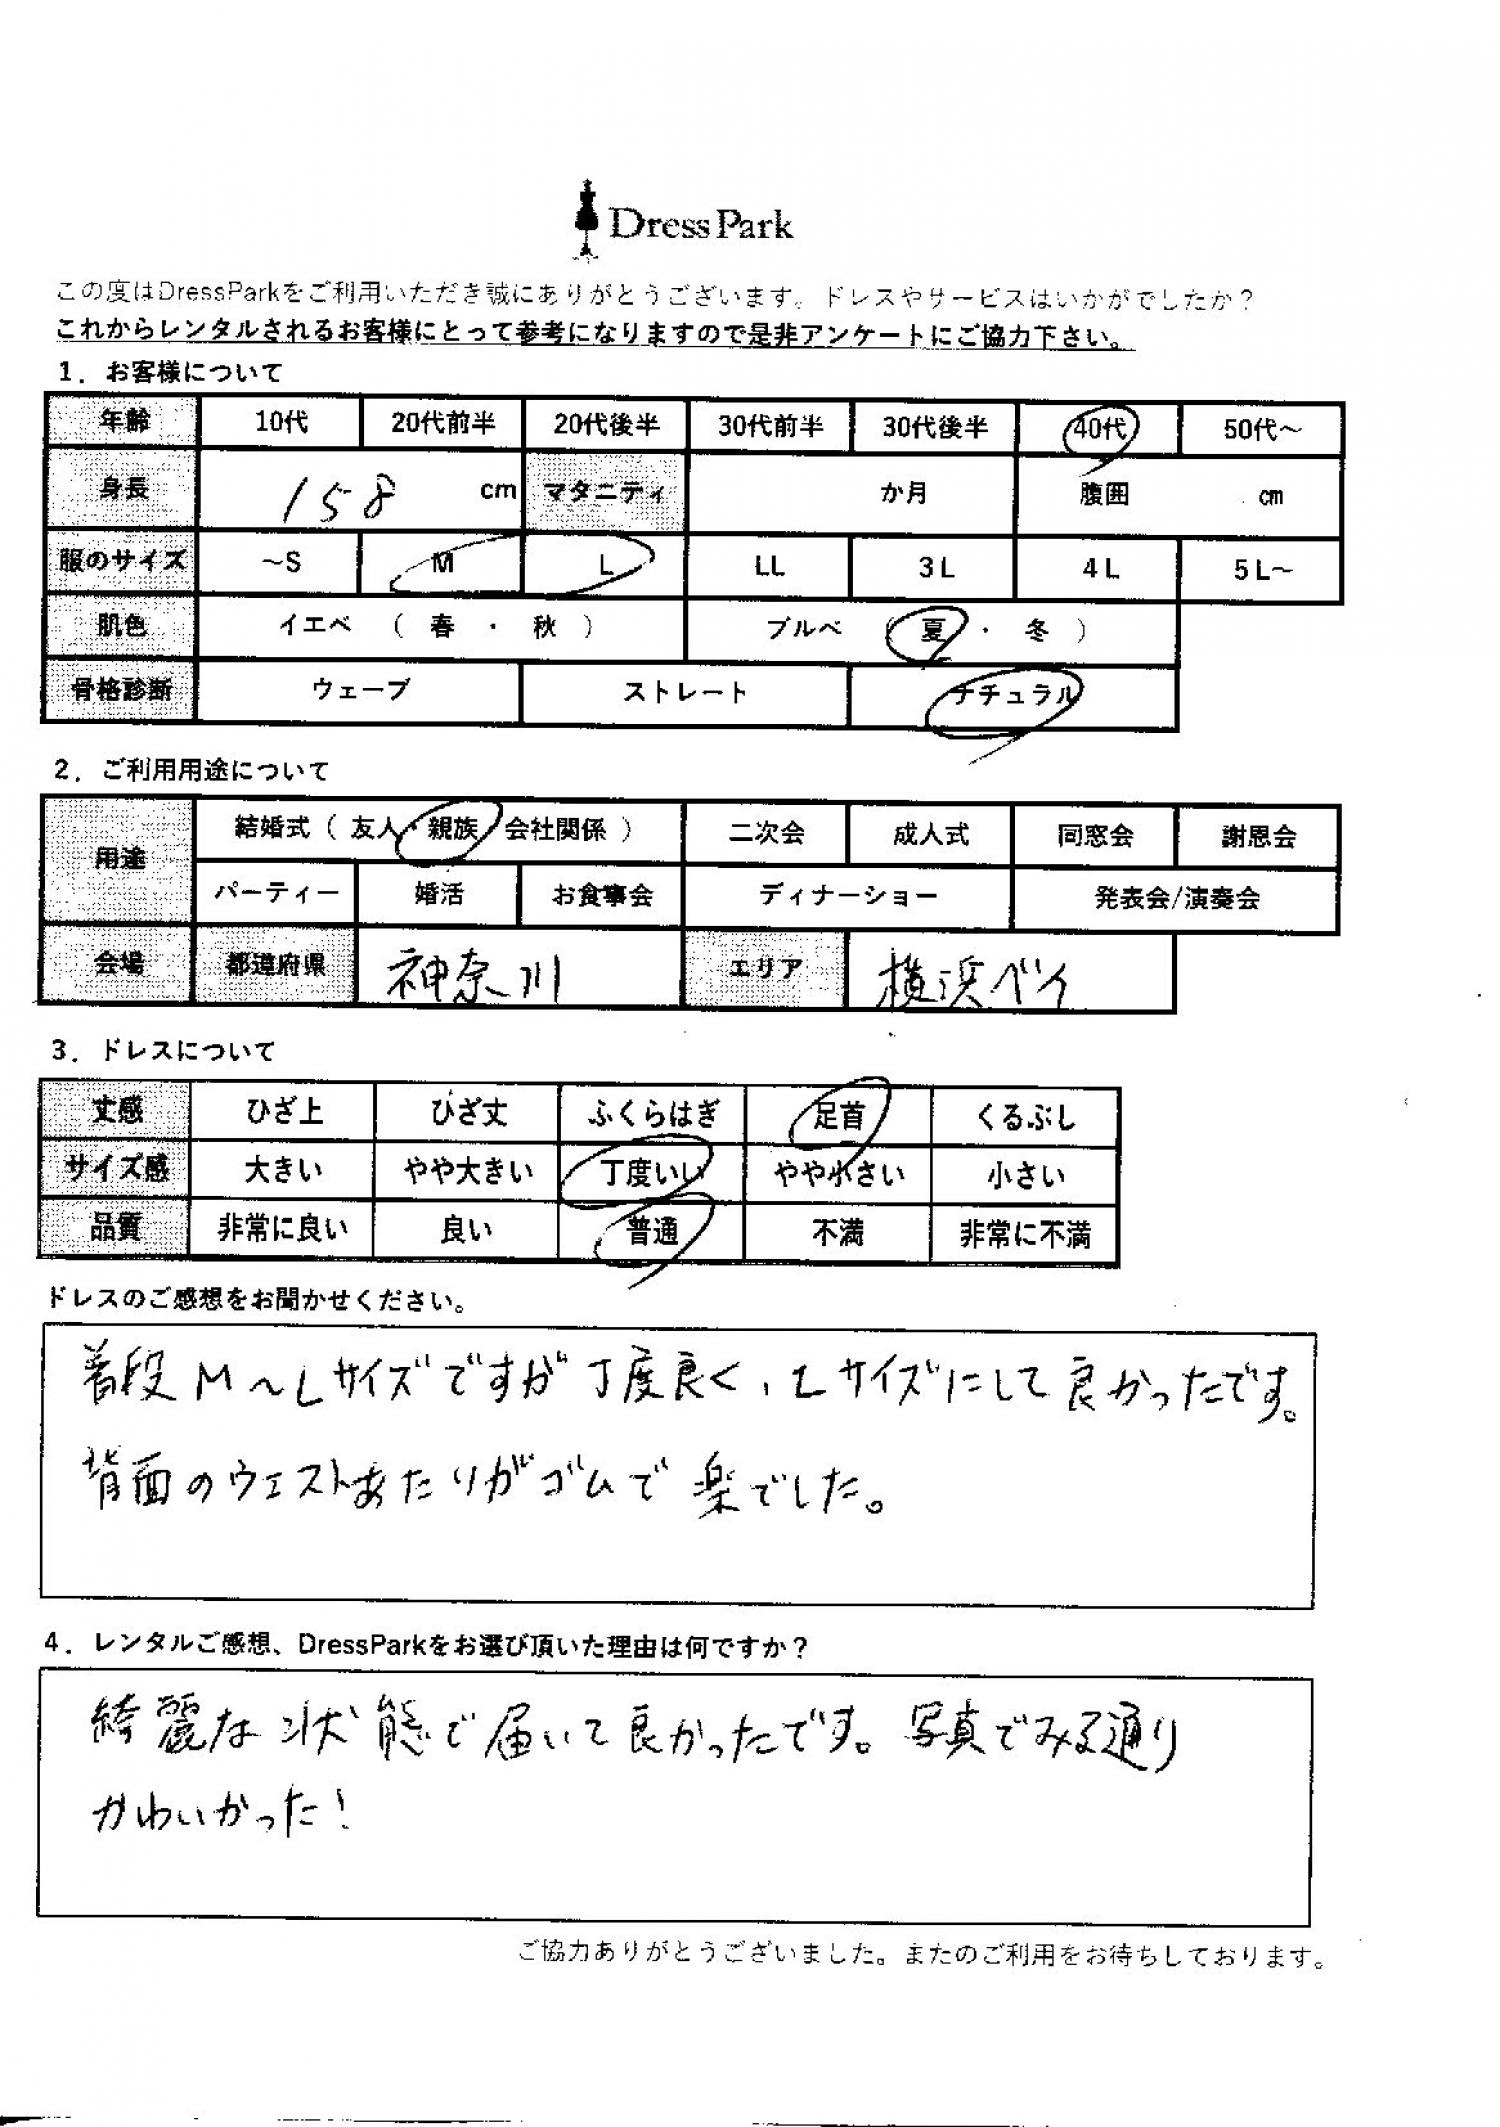 DressPark
この度はDressParkをご利用いただき誠にありがとうございます。ドレスやサービスはいかがでしたか？
これからレンタルされるお客様にとって参考になりますので是非アンケートにご協力下さい。
1．お客様について
年齢 10代 20代前半 20代後半 30代前半 30代後半 40代 50代～
身長 158 cm マタニティ か月 腹囲 cm
服のサイズ ～S M L LL 3L 4L 5L～
肌色 イエベ （ 春 ・ 秋 ） ブルベ （ 夏 ・ 冬 ）
骨格診断 ウェーブ ストレート ナチュラル
2．ご利用用途について
用途 結婚式（ 友人・親族・会社関係 ） 二次会 成人式 同窓会 謝恩会
パーティー 婚活 お食事会 ディナーショー 発表会/演奏会
会場 都道府県 神奈川 エリア 横浜ベイ
3．ドレスについて
丈感 ひざ上 ひざ丈 ふくらはぎ 足首 くるぶし
サイズ感 大きい やや大きい 丁度いい やや小さい 小さい
品質 非常に良い 良い 普通 不満 非常に不満
ドレスのご感想をお聞かせください。
普段M～Lサイズですが丁度良く、Lサイズにして良かったです。
背面のウエストあたりがゴムで楽でした。
4．レンタルご感想、DressParkをお選び頂いた理由は何ですか？
綺麗な状態で届いて良かったです。写真でみる通り
かわいかった！
ご協力ありがとうございました。またのご利用をお待ちしております。